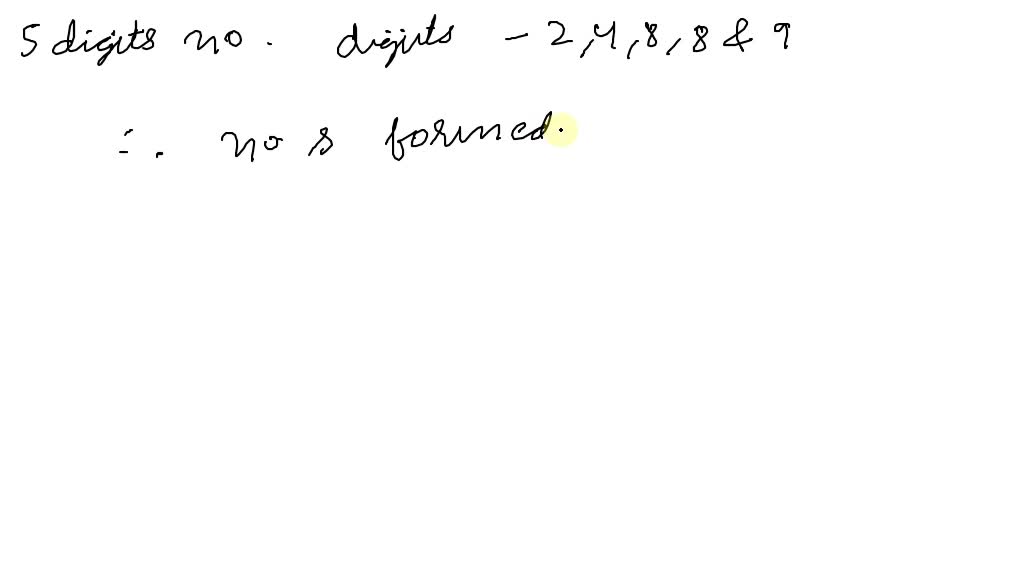 5 digits no. digits - 2,4,8,8 & 9
∴ no s formed.